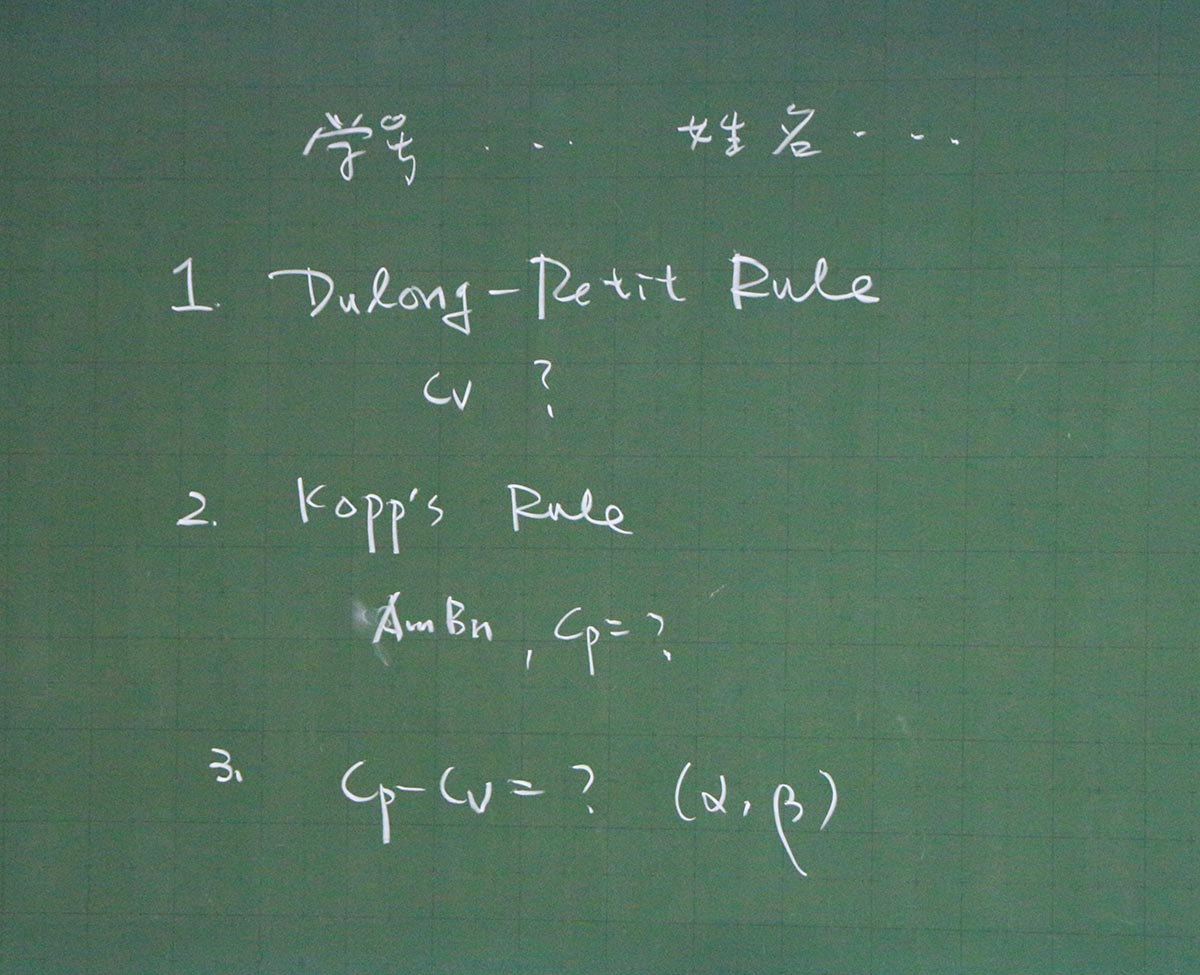 学号 ... 姓名 ....
1. Dulong-Petit Rule
CV ?
2. Kopp's Rule
AmBn, Cp=?
3. Cp-CV=? (α, β)